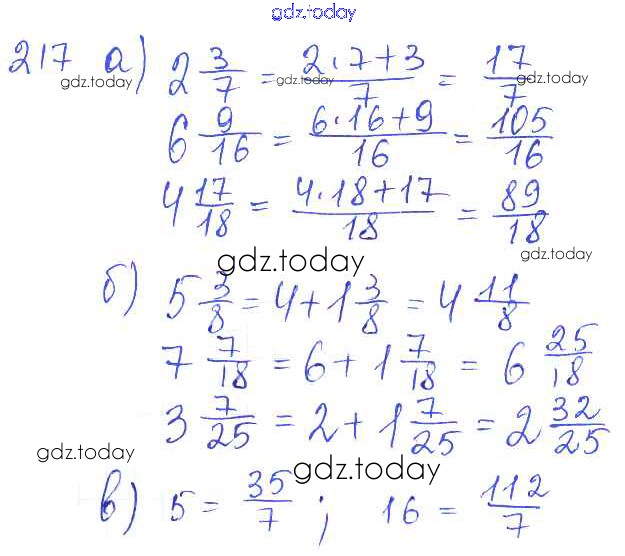 gdz.today
217 а) 2 3/7 = (2·7+3)/7 = 17/7
gdz.today gdz.today gdz.today
6 9/16 = (6·16+9)/16 = 105/16
4 17/18 = (4·18+17)/18 = 89/18
gdz.today gdz.today
б) 5 3/8 = 4+1 3/8 = 4 11/8
7 7/18 = 6+1 7/18 = 6 25/18
3 7/25 = 2+1 7/25 = 2 32/25
gdz.today gdz.today
в) 5 = 35/7 ; 16 = 112/7